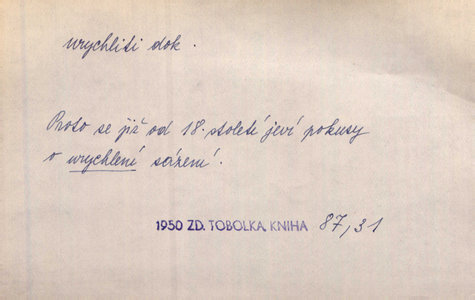 urychliti dok.
Proto se již od 18. století jeví pokusy
o urychlení sázení.
1950 ZD. TOBOLKA, KNIHA 87,31